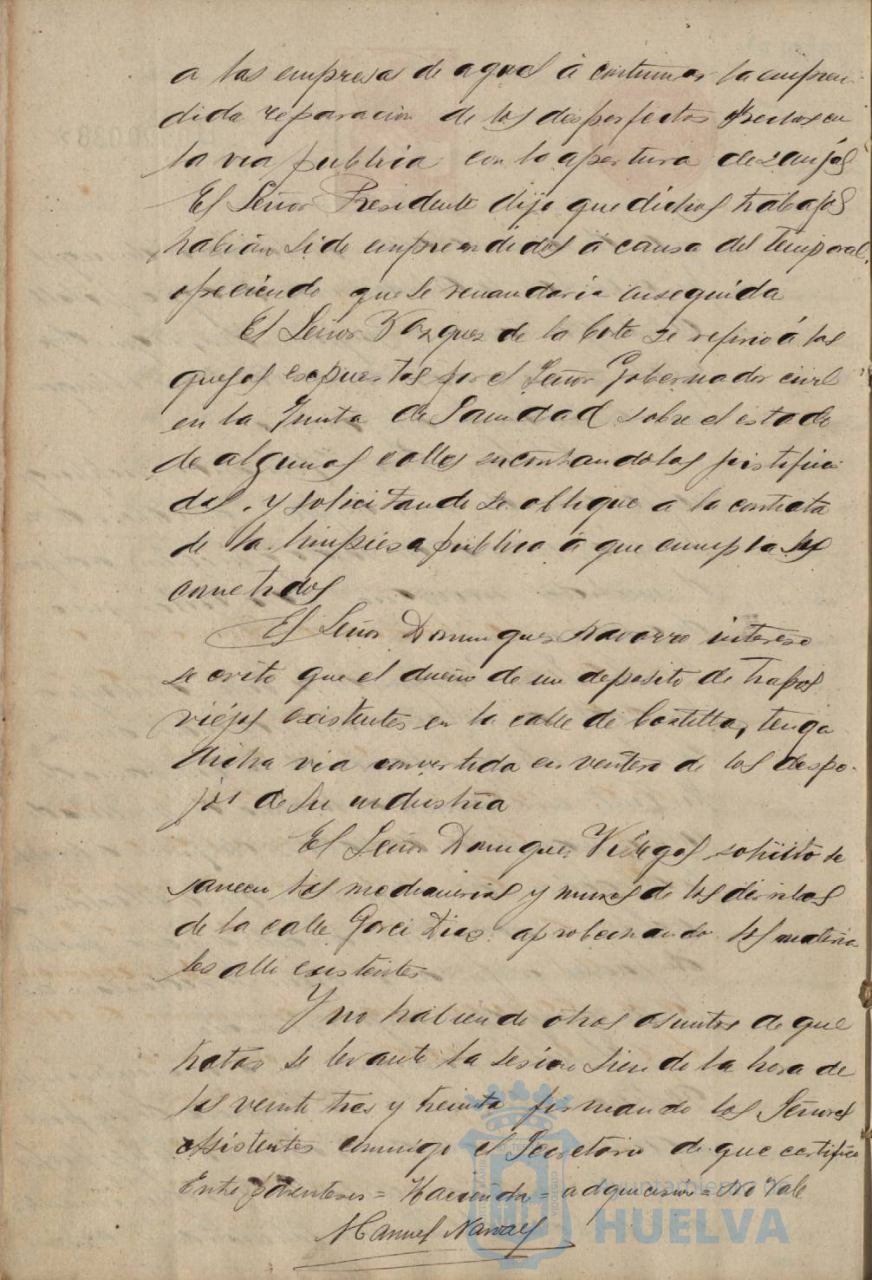 a las empresas de aguas á continuar la empren-
dida reparacion de los desperfectos hechos en
la via publica con la apertura de zanjas
El Señor Presidente dijo que dichos trabajos
habian sido emprendidos á causa del temporal,
ofreciendo que se reanudaria enseguida
El Señor Vazquez de la Corte se refirió á las
quejas expuestas por el Señor Gobernador civil
en la Junta de Sanidad sobre el estado
de algunas calles encontrandolas justifica
das, y solicitando se obligue a la contrata
de la limpieza publica á que cumpla sus
cometidos
El Señor Dominguez Navarro intereso
se evite que el dueño de un deposito de trapos
viejos existentes en la calle de Castilla, tenga
dicha via convertida en vertedero de los despo-
jos de su industria
El Señor Dominguez Viegas solicitó se
saneen las medianerias y muros de los derribos
de la calle Garci Diaz aprobechando los materia
les alli existentes
Y no habiendo otros asuntos de que
tratar se levanto la sesion siendo la hora de
las veinte tres y treinta firmando los Señores
asistentes conmigo el Secretario de que certifico
Entre parentesis = Hacienda = adquicision = No Vale
Manuel
Ayuntamiento de
HUELVA